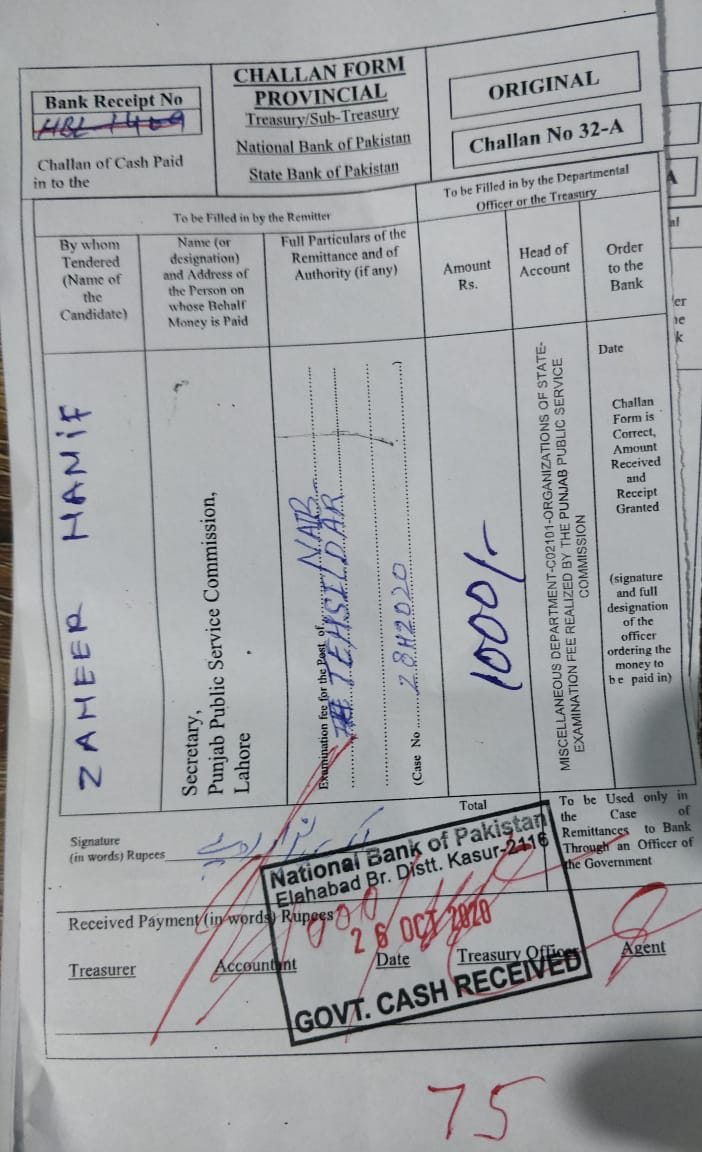 Bank Receipt No
Challan of Cash Paid
in to the
CHALLAN FORM
PROVINCIAL
Treasury/Sub-Treasury
National Bank of Pakistan
State Bank of Pakistan
ORIGINAL
Challan No 32-A
To be Filled in by the Remitter
To be Filled in by the Departmental
Officer or the Treasury
By whom
Tendered
(Name of
the
Candidate)
Name (or
designation)
and Address of
the Person on
whose Behalf
Money is Paid
Full Particulars of the
Remittance and of
Authority (if any)
Amount
Rs.
Head of
Account
Order
to the
Bank
ZAMEER HANiF
Secretary,
Punjab Public Service Commission,
Lahore
Examination fee for the Post of NAIB
TEHSILDAR
(Case No 28H2020 )
1000/-
MISCELLANEOUS DEPARTMENT-C02101-ORGANIZATIONS OF STATE-
EXAMINATION FEE REALIZED BY THE PUNJAB PUBLIC SERVICE
COMMISSION
Date
Challan
Form is
Correct,
Amount
Received
and
Receipt
Granted
(signature
and full
designation
of the
officer
ordering the
money to
be paid in)
Total
Signature
(in words) Rupees
To be Used only in
the Case of
Remittances to Bank
Through an Officer of
the Government
National Bank of Pakistan
Elahabad Br. Distt. Kasur-2116
Received Payment (in words) Rupees
26 OCT 2020
Treasurer
Accountant
Date
Treasury Officer
Agent
GOVT. CASH RECEIVED
75